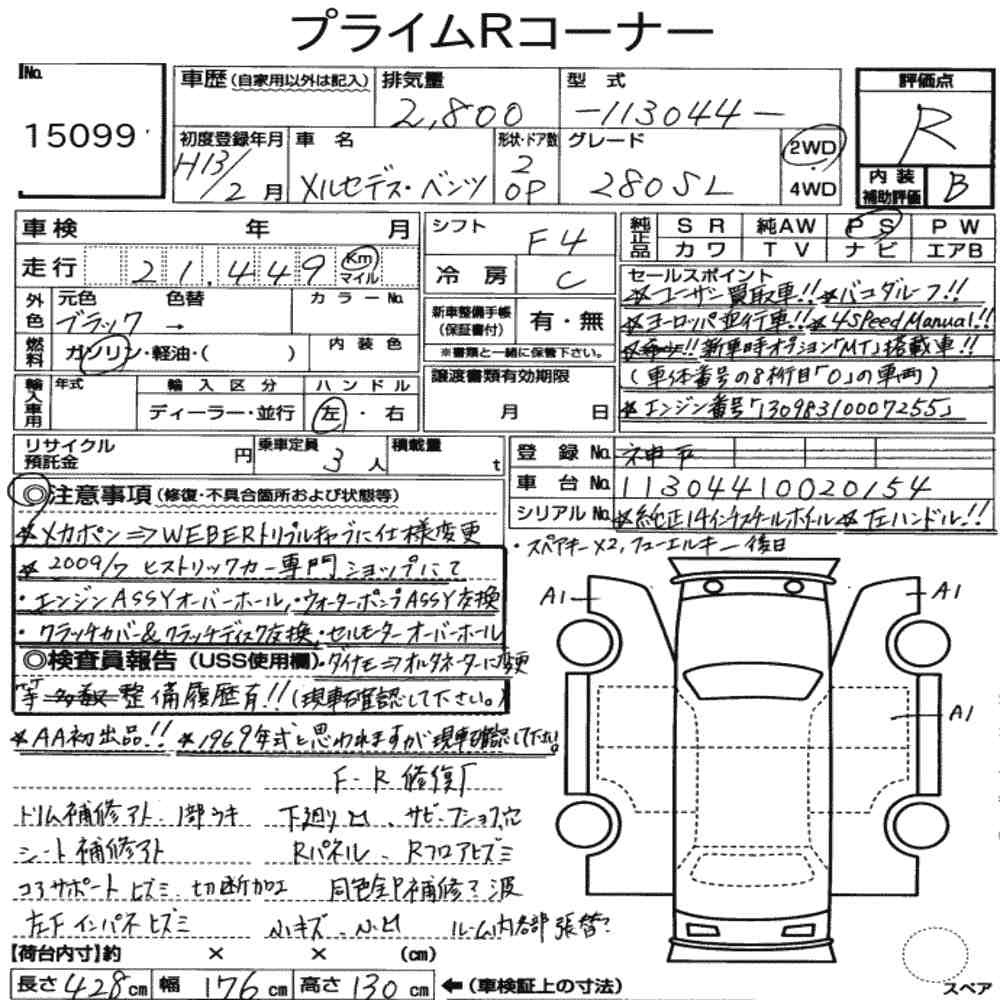 プライムRコーナー
No. 15099
車歴(自家用以外は記入) 排気量 2,800 型式 -113044-
評価点 R
初度登録年月 H13/2月 車名 メルセデス・ベンツ 形状・ドア数 2 OP グレード 280SL 2WD・4WD
内装補助評価 B
車検 年 月
走行 21,449 Km マイル
外色 元色 ブラック → 色替 カラーNo.
燃料 ガソリン・軽油・( ) 内装色
輸入車用 年式 輸入区分 ディーラー・並行 ハンドル 左・右
シフト F4
冷房 C
新車整備手帳(保証書付) 有・無
※書類と一緒に保管下さい。
譲渡書類有効期限
月 日
純正品 SR 純AW PS PW
カワ TV ナビ エアB
セールスポイント
☆ユーザー買取車!! ☆パゴダルーフ!!
☆ヨーロッパ並行車!! ☆4SpeedManual!!
!!新車時オプション「MT」搭載車!!
(車体番号の8桁目「0」の車両)
☆エンジン番号「13098310007255」
リサイクル預託金 円 乗車定員 3人 積載量 t
登録No. 神戸
車台No. 11304410020154
シリアルNo. ☆純正14インチスチールホイル ☆左ハンドル!!
・スペアキー×2,フューエルキー 後日
◎注意事項(修復・不具合箇所および状態等)
☆メカポン⇒WEBERトリプルキャブに仕様変更
☆2009/7 ヒストリックカー専門ショップにて
・エンジンASSYオーバーホール,・ウォーターポンプASSY交換
・クラッチカバー&クラッチディスク交換・セルモーターオーバーホール
◎検査員報告(USS使用欄)・ダイナモ⇒オルタネーターに変更
等 多数 整備履歴有!!(現車確認して下さい。)
☆AA初出品!! ☆1969年式と思われますが現車確認して下さい
F-R修復
トリム補修アト、1部ウキ 下廻り凹、サビ・
シート補修アト Rパネル、Rフロアヒズミ
コアサポートヒズミ、切断加工 同色全P補修?波
左Fインパネヒズミ 小キズ、小凹 ルーム内各部張替?
A1
A1
A1
【荷台内寸】約 × × (cm)
長さ428cm 幅176cm 高さ130cm ←(車検証上の寸法)
スペア